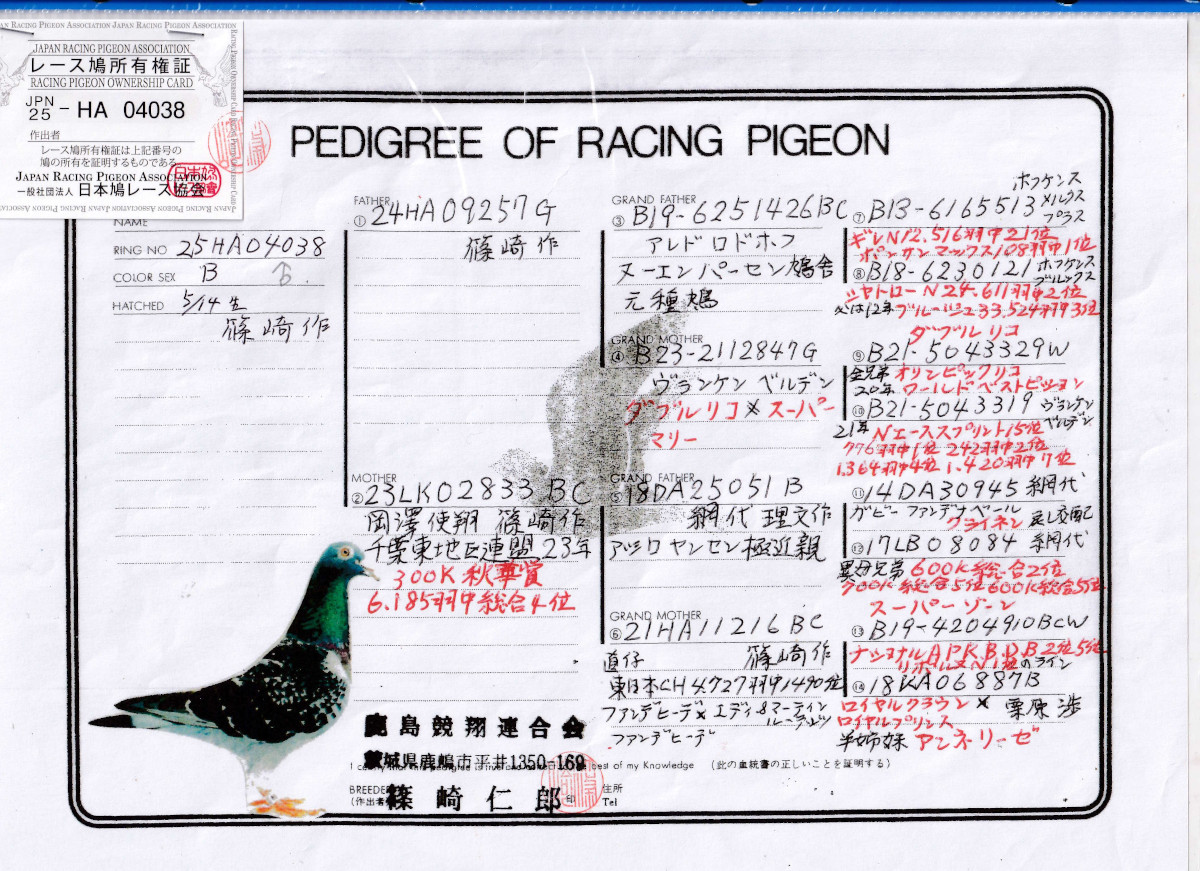 JAPAN RACING PIGEON ASSOCIATION
レース鳩所有権証
RACING PIGEON OWNERSHIP CARD
JPN 25 - HA 04038
作出者
レース鳩所有権証は上記番号の
鳩の所有を証明するものである
JAPAN RACING PIGEON ASSOCIATION
一般社団法人 日本鳩レース協会
PEDIGREE OF RACING PIGEON
NAME
RING NO 25HA04038
COLOR SEX B ♂
HATCHED 5/14生
篠崎作
FATHER
① 24HA09257G
篠崎作
MOTHER
② 23LK02833BC
岡澤使翔 篠崎作
千葉東地区連盟23年
300K秋華賞
6.185羽中総合4位
GRAND FATHER
③ B19-6251426BC
アレドロドホフ
ヌーエンパーセン鳩舎
元種鳩
GRAND MOTHER
④ B23-2112847G
ヴランケンベルデン
ダブルリコ×スーパー
マリー
GRAND FATHER
⑤ 18DA25051B
網代理文作
アツロヤンセン極近親
GRAND MOTHER
⑥ 21HA11216BC
直仔 篠崎作
東日本CH4.727羽中1490位
ファンデヒーデ×エディ&マーティン
ファンデヒーデ
ホフケンス
メルクス
プラス
⑦ B13-6165513
ギレN12.516羽中21位
ポンサンマックス108羽中1位
⑧ B18-6230121 ホフケンス
ブルックス
シャトローN24.611羽中2位
ブルージュ33.524羽中3位
ダブルリコ
⑨ B21-5043329W
全兄弟オリンピックリコ
20年ワールドベストピジョン
⑩ B21-5043319 ヴランケン
ベルデン
21年Nエーススプリント15位
776羽中1位 242羽中2位
1.364羽中4位 1.420羽中7位
⑪ 14DA30945 網代
ガビーファンデナベール
クライネン 戻し交配
⑫ 17LB08084 網代
異母兄弟600K総合2位
700K総合5位 600K総合5位
スーパーゾーン
⑬ B19-4204910BCW
ナショナルAPKB.D.B2位5位
のライン
⑭ 18KA06887B
ロイヤルクラウン× 栗原渉
ロイヤルプリンス
半姉妹 アンネリーゼ
鹿島競翔連合会
茨城県鹿嶋市平井1350-169
I certify that this pedigree is true and best of my Knowledge (此の血統書の正しいことを証明する)
BREEDER
(作出者) 篠崎仁郎 印
住所
Tel